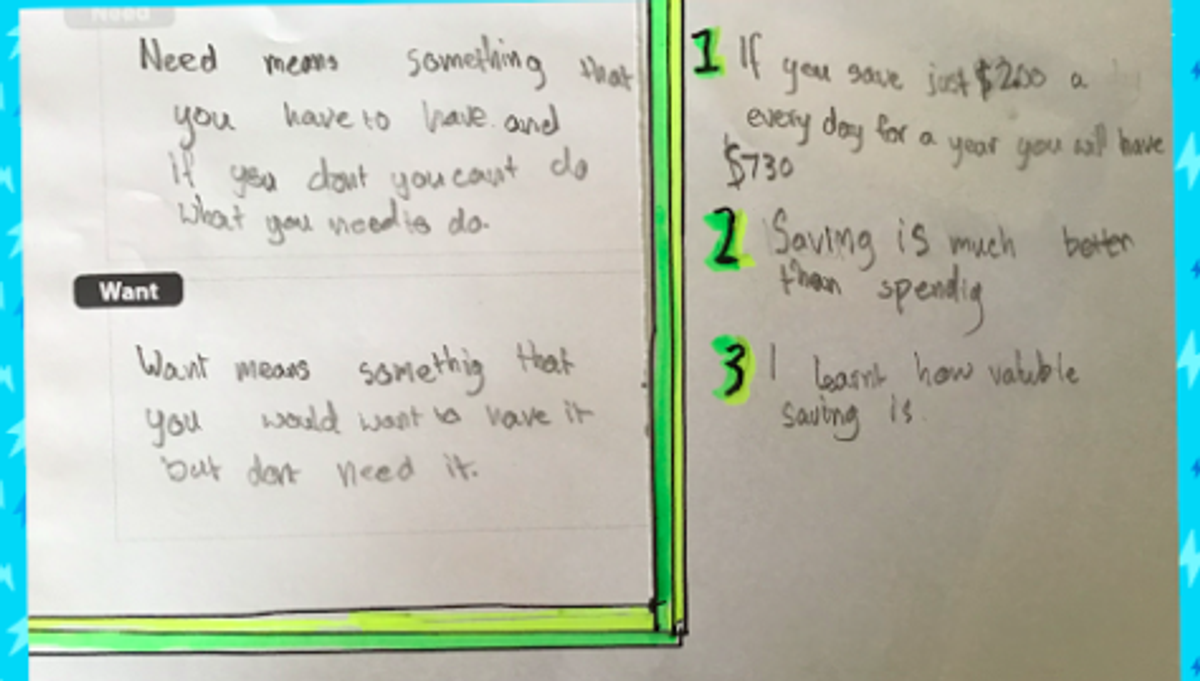 Need
Need means something that
you have to have. and
if you dont you cant do
what you need to do.
Want
Want means somethig that
you would want to have it
but dont need it.
1 If you save just $2.00 a
every day for a year you will have
$730
2 Saving is much better
than spendig
3 I learnt how valuble
saving is.